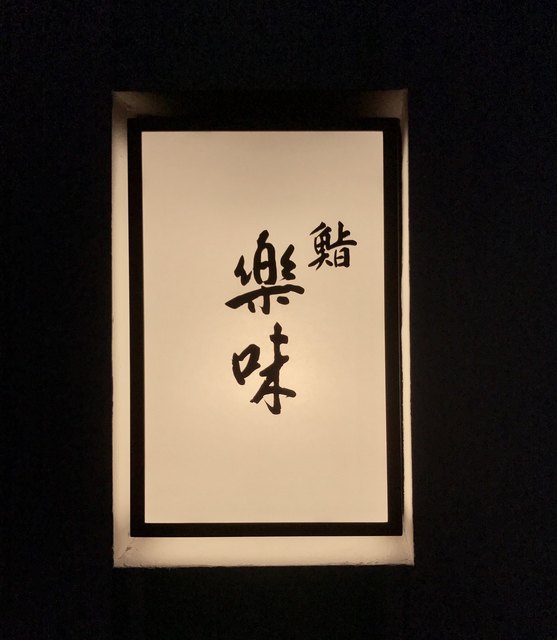 鮨
樂味